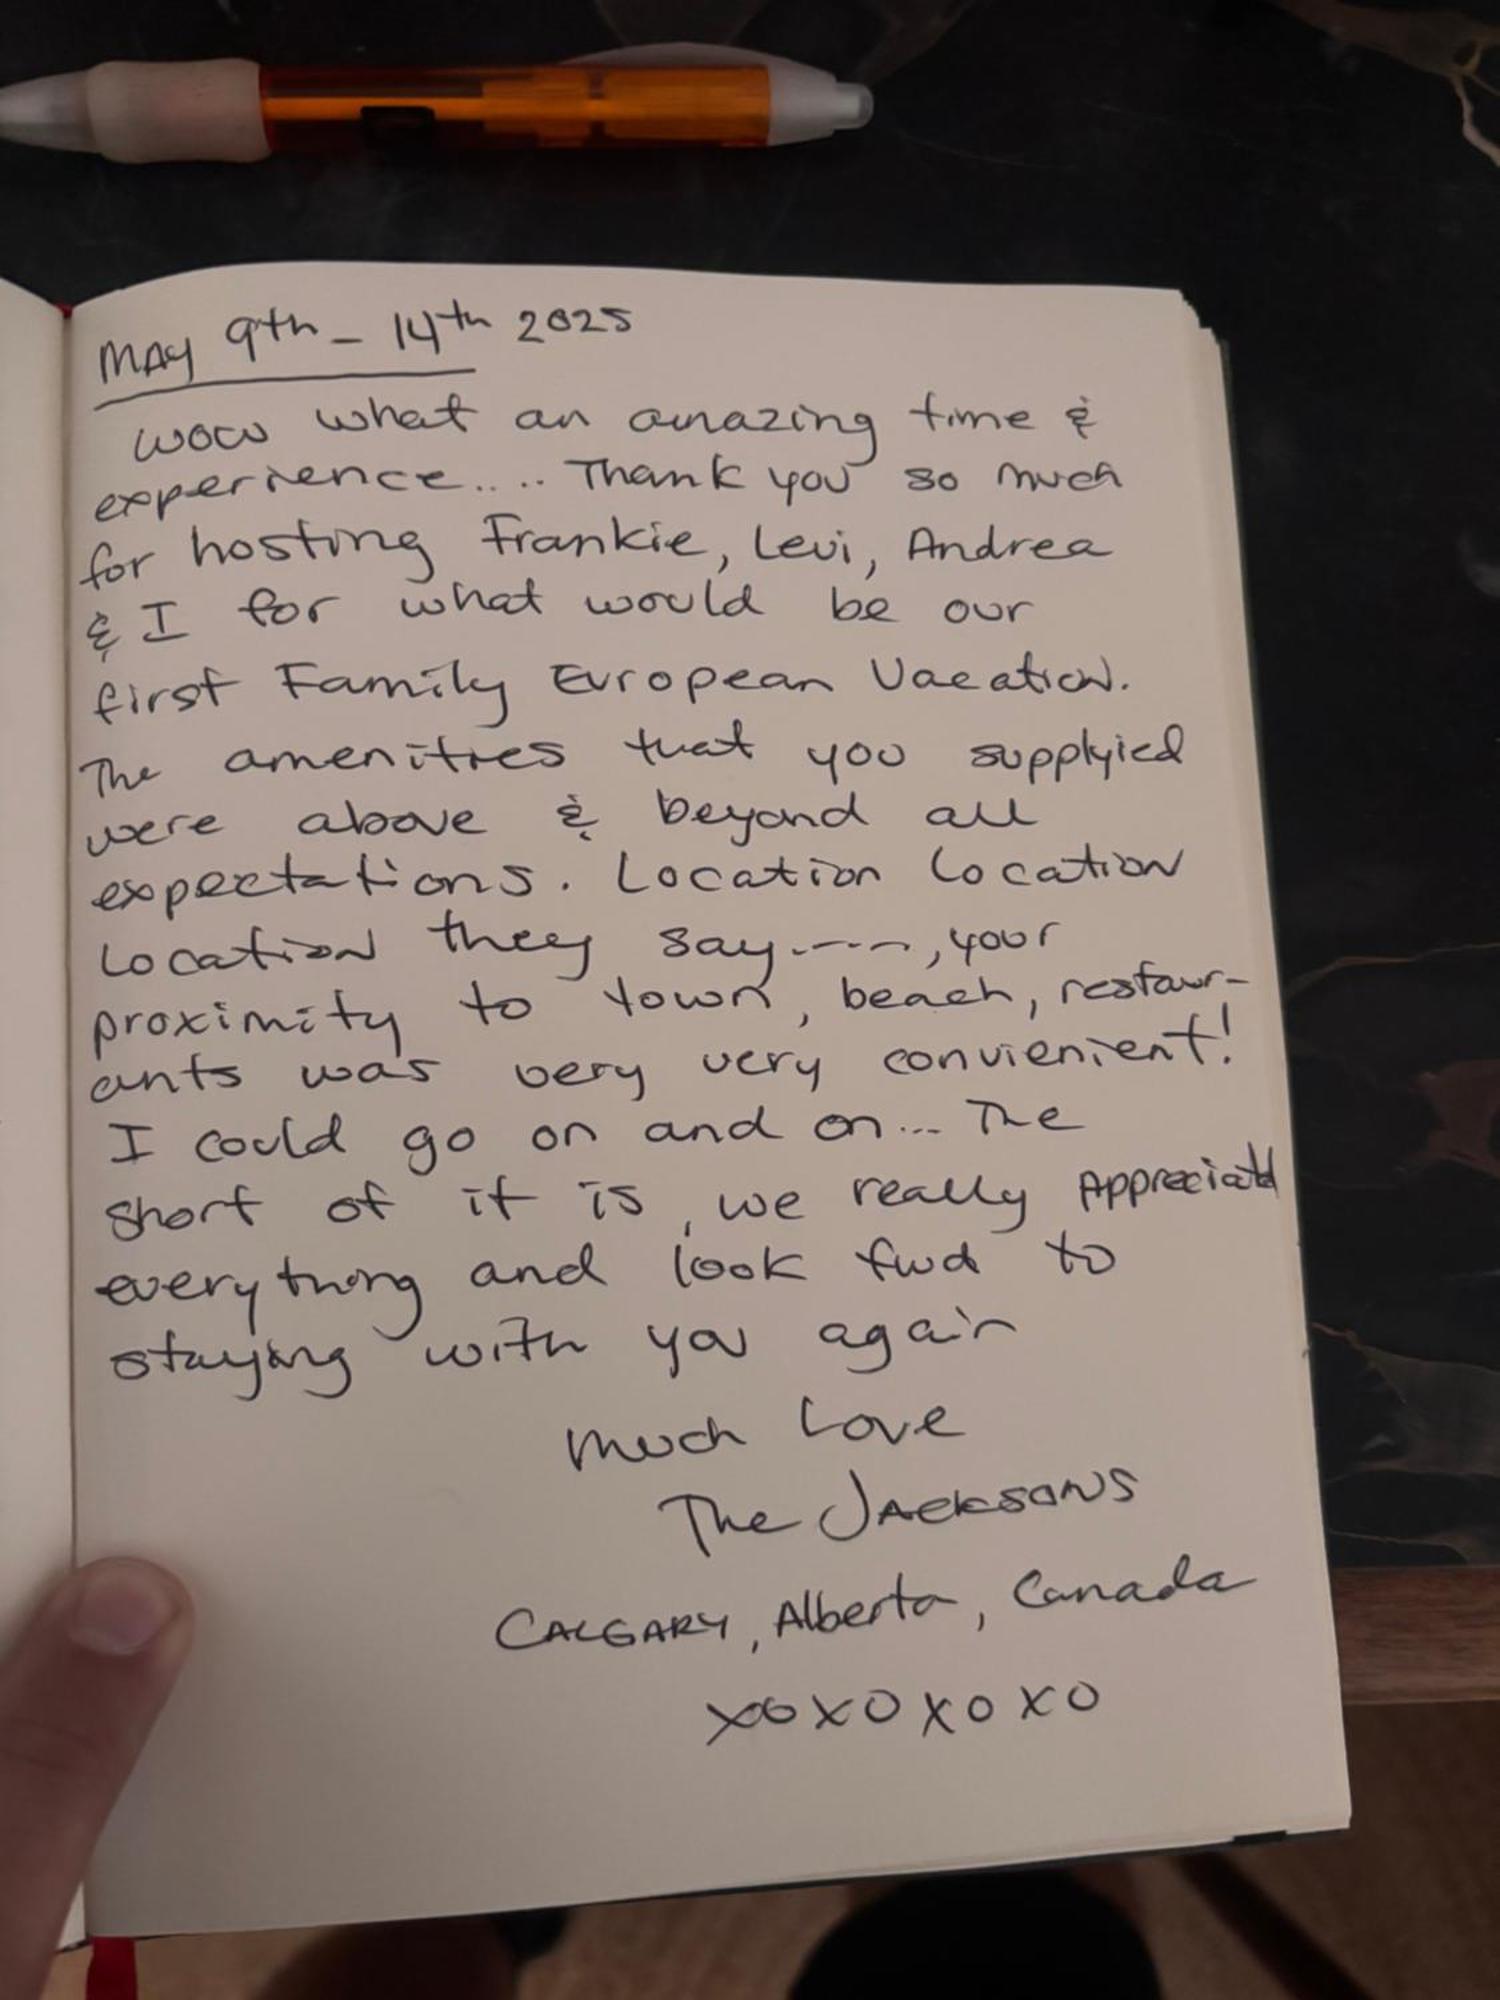 MAY 9th - 14th 2025
Wow what an amazing time &
experience.... Thank you so much
for hosting Frankie, Levi, Andrea
& I for what would be our
first Family European Vacation.
The amenities that you supplyied
were above & beyond all
expectations. Location Location
Location they say----, your
proximity to town, beach, restaur-
ants was very very convienient!
I could go on and on... The
short of it is, we really Appreciated
everything and look fwd to
staying with you again
Much Love
The JACKSONS
CALGARY, Alberta, Canada
XOXOXOXO